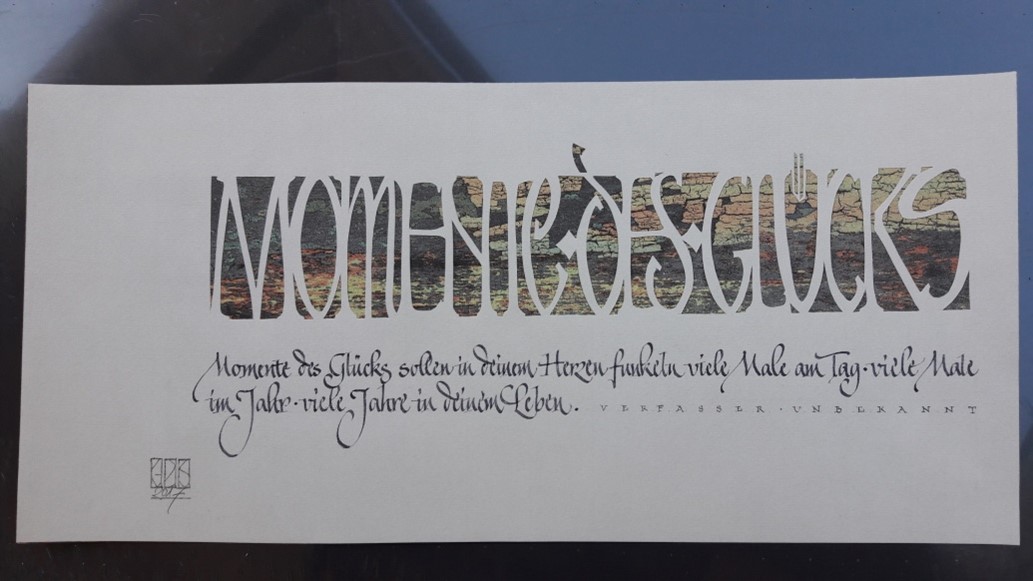 MOMENTE·DES·GLÜCKS
Momente des Glücks sollen in deinem Herzen funkeln viele Male am Tag · viele Male
im Jahr · viele Jahre in deinem Leben. VERFASSER · UNBEKANNT
2017